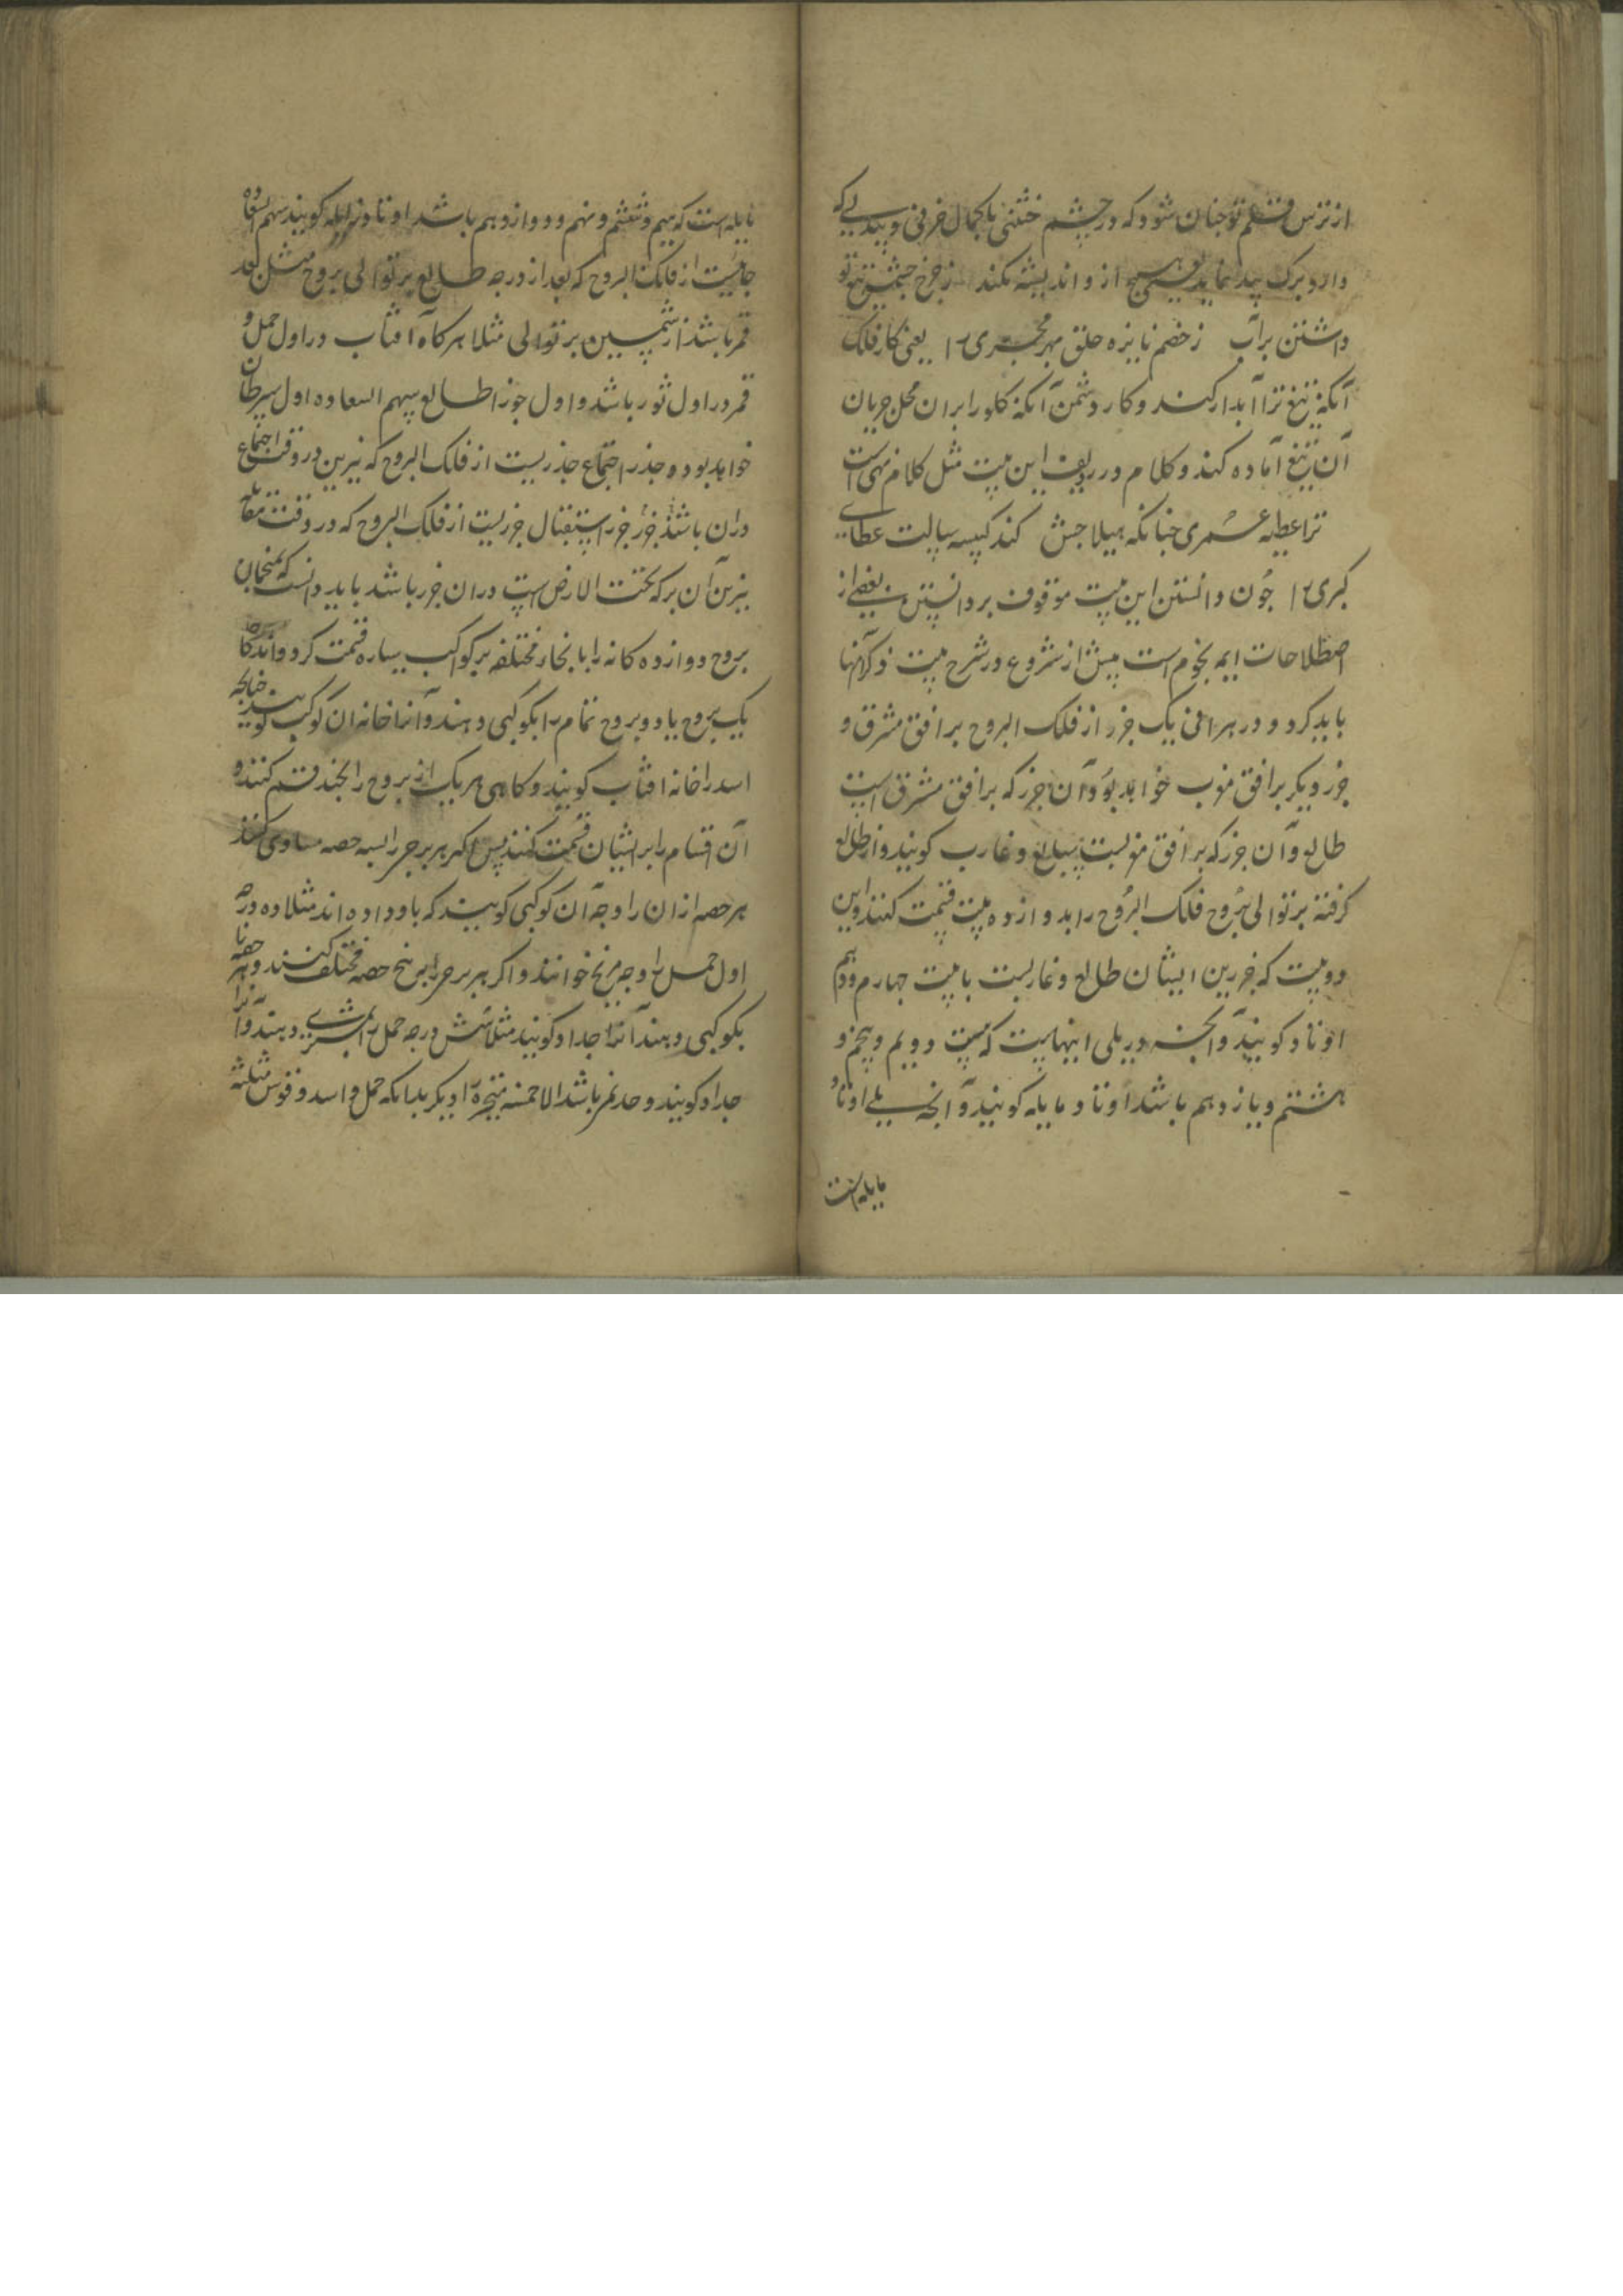 از ترس قلم تو چنان شود که در چشم خنثی با کمال حرفی و پیدایی که
دارد برک پیدا نماید و هیچ از و اندیشه نکند ز چرخ چشمه تیغ تو
داشتن بر آب ز خصم نایزه حلق بهر مجری را یعنی کار فلک
آنکه تیغ ترا آبدار کند و کار دشمن آنکه کلو را برای محل جریان
آن تیغ آماده کند و کلام در ردیف این بیت مثل کلام مهی است
ترا عطیه عمری چنانکه هیلاجش کند کبیسه سالت عطای
کبری را چون دانستن این بیت موقوف بر دانستن بعضی از
اصطلاحات ایمه نجوم است پیش از شروع در شرح بیت ذکر آنها
باید کرد و در هر آنی یک جزء از فلک البروج بر افق مشرق و
جزء دیگر بر افق مغرب خواهد بود و آن جزء که بر افق مشرقی است
طالع و آن جزء که بر افق مغربست سابع و غارب کویند و از طالع
کرفته بر توالی بروج فلک البروج را بدوازده بیت قسمت کنند و این
دو بیت که جزءین ایشان طالع و غاربست با بیت چهارم و دهم
اوتاد کویند و آنچه در یلی اینهاست که بیت دویم و پنجم و
هشتم و یازدهم باشد اوتاد مایله کویند و آنچه یلی اوتاد
مایله است
مایله است که سیم و ششم و نهم و دوازدهم باشد اوتاد زایله کویند سهم السعاده
جائیست از فلک البروج که بعد از درجه طالع بر توالی بروج مثل بعد
قمر باشد از شمس بر توالی مثلا هرکاه آفتاب در اول حمل و
قمر در اول ثور باشد و اول جوزا طالع سهم السعاده اول سرطان
خواهد بود و جذر اجتماع جذریست از فلک البروج که نیرین در وقت اجتماع
دران باشند جزء استقبال جزیست از فلک البروج که در وقت مقابله
نیرین آن بر که تحت الارض است دران جزء باشد باید دانست که منجمان
بروج دوازده کانه را با نحاء مختلفه بر کواکب سیاره قسمت کرده اند کاه
یک بروج یا دو بروج تمام را بکوکبی دهند و آنرا خانه ان کوکب کویند چنانچه
اسد را خانه افتاب کویند و کاهی هر یک از بروج را بچند قسم کنند و
آن اقسام را بر ایشان قسمت کنند پس اکر هر برج را بسه حصه مساوی کنند
هر حصه ازان را وجه آن کوکبی کویند که باو داده اند مثلا ده درجه
اول حمل را وجه مریخ خوانند و اکر هر برج را بر پنج حصه مختلف کنند و هر حصه را
بکوکبی دهند آنرا حد او کویند مثلا شش درجه حمل را بمشتری دهند و آنرا
حد او کویند و حد نیر باشد الا خمسه متحیره را دیکر بدانکه حمل و اسد و قوس مثلثه